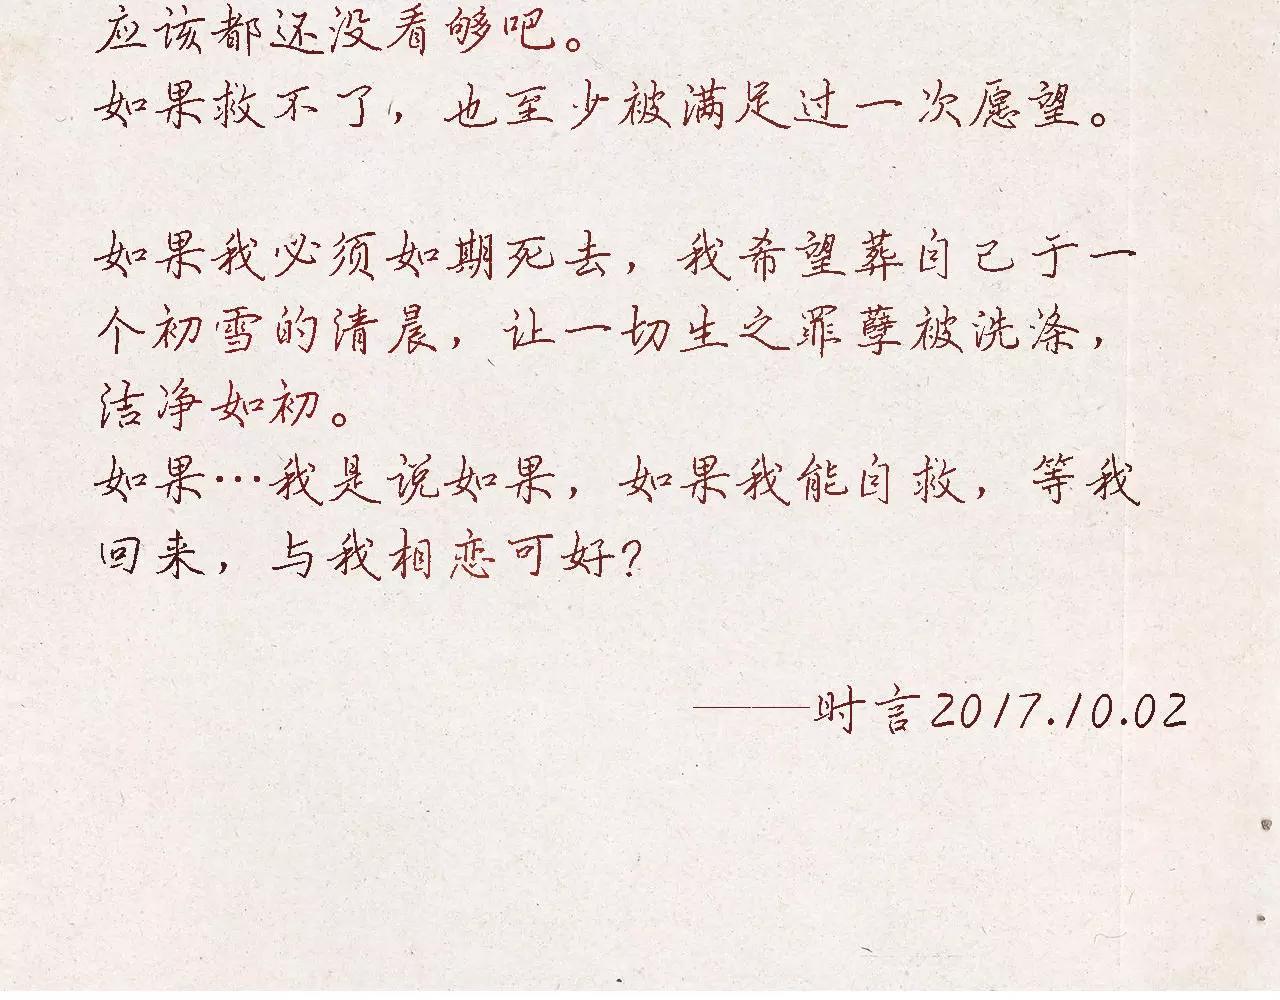 应该都还没看够吧。
如果救不了，也至少被满足过一次愿望。
如果我必须如期死去，我希望葬自己于一
个初雪的清晨，让一切生之罪孽被洗涤，
洁净如初。
如果…我是说如果，如果我能自救，等我
回来，与我相恋可好？
———时言2017.10.02